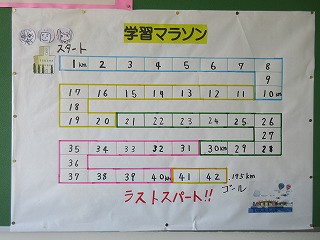 学習マラソン
スタート
1km 2 3 4 5 6 7 8
9
17 16 15 14 13 12 11 10km
18
19 20 21 22 23 24 25 26
27
35 34 33 32 31 30km 29 28
36
37 38 39 40km 41 42 .195km
ゴール
ラストスパート!!